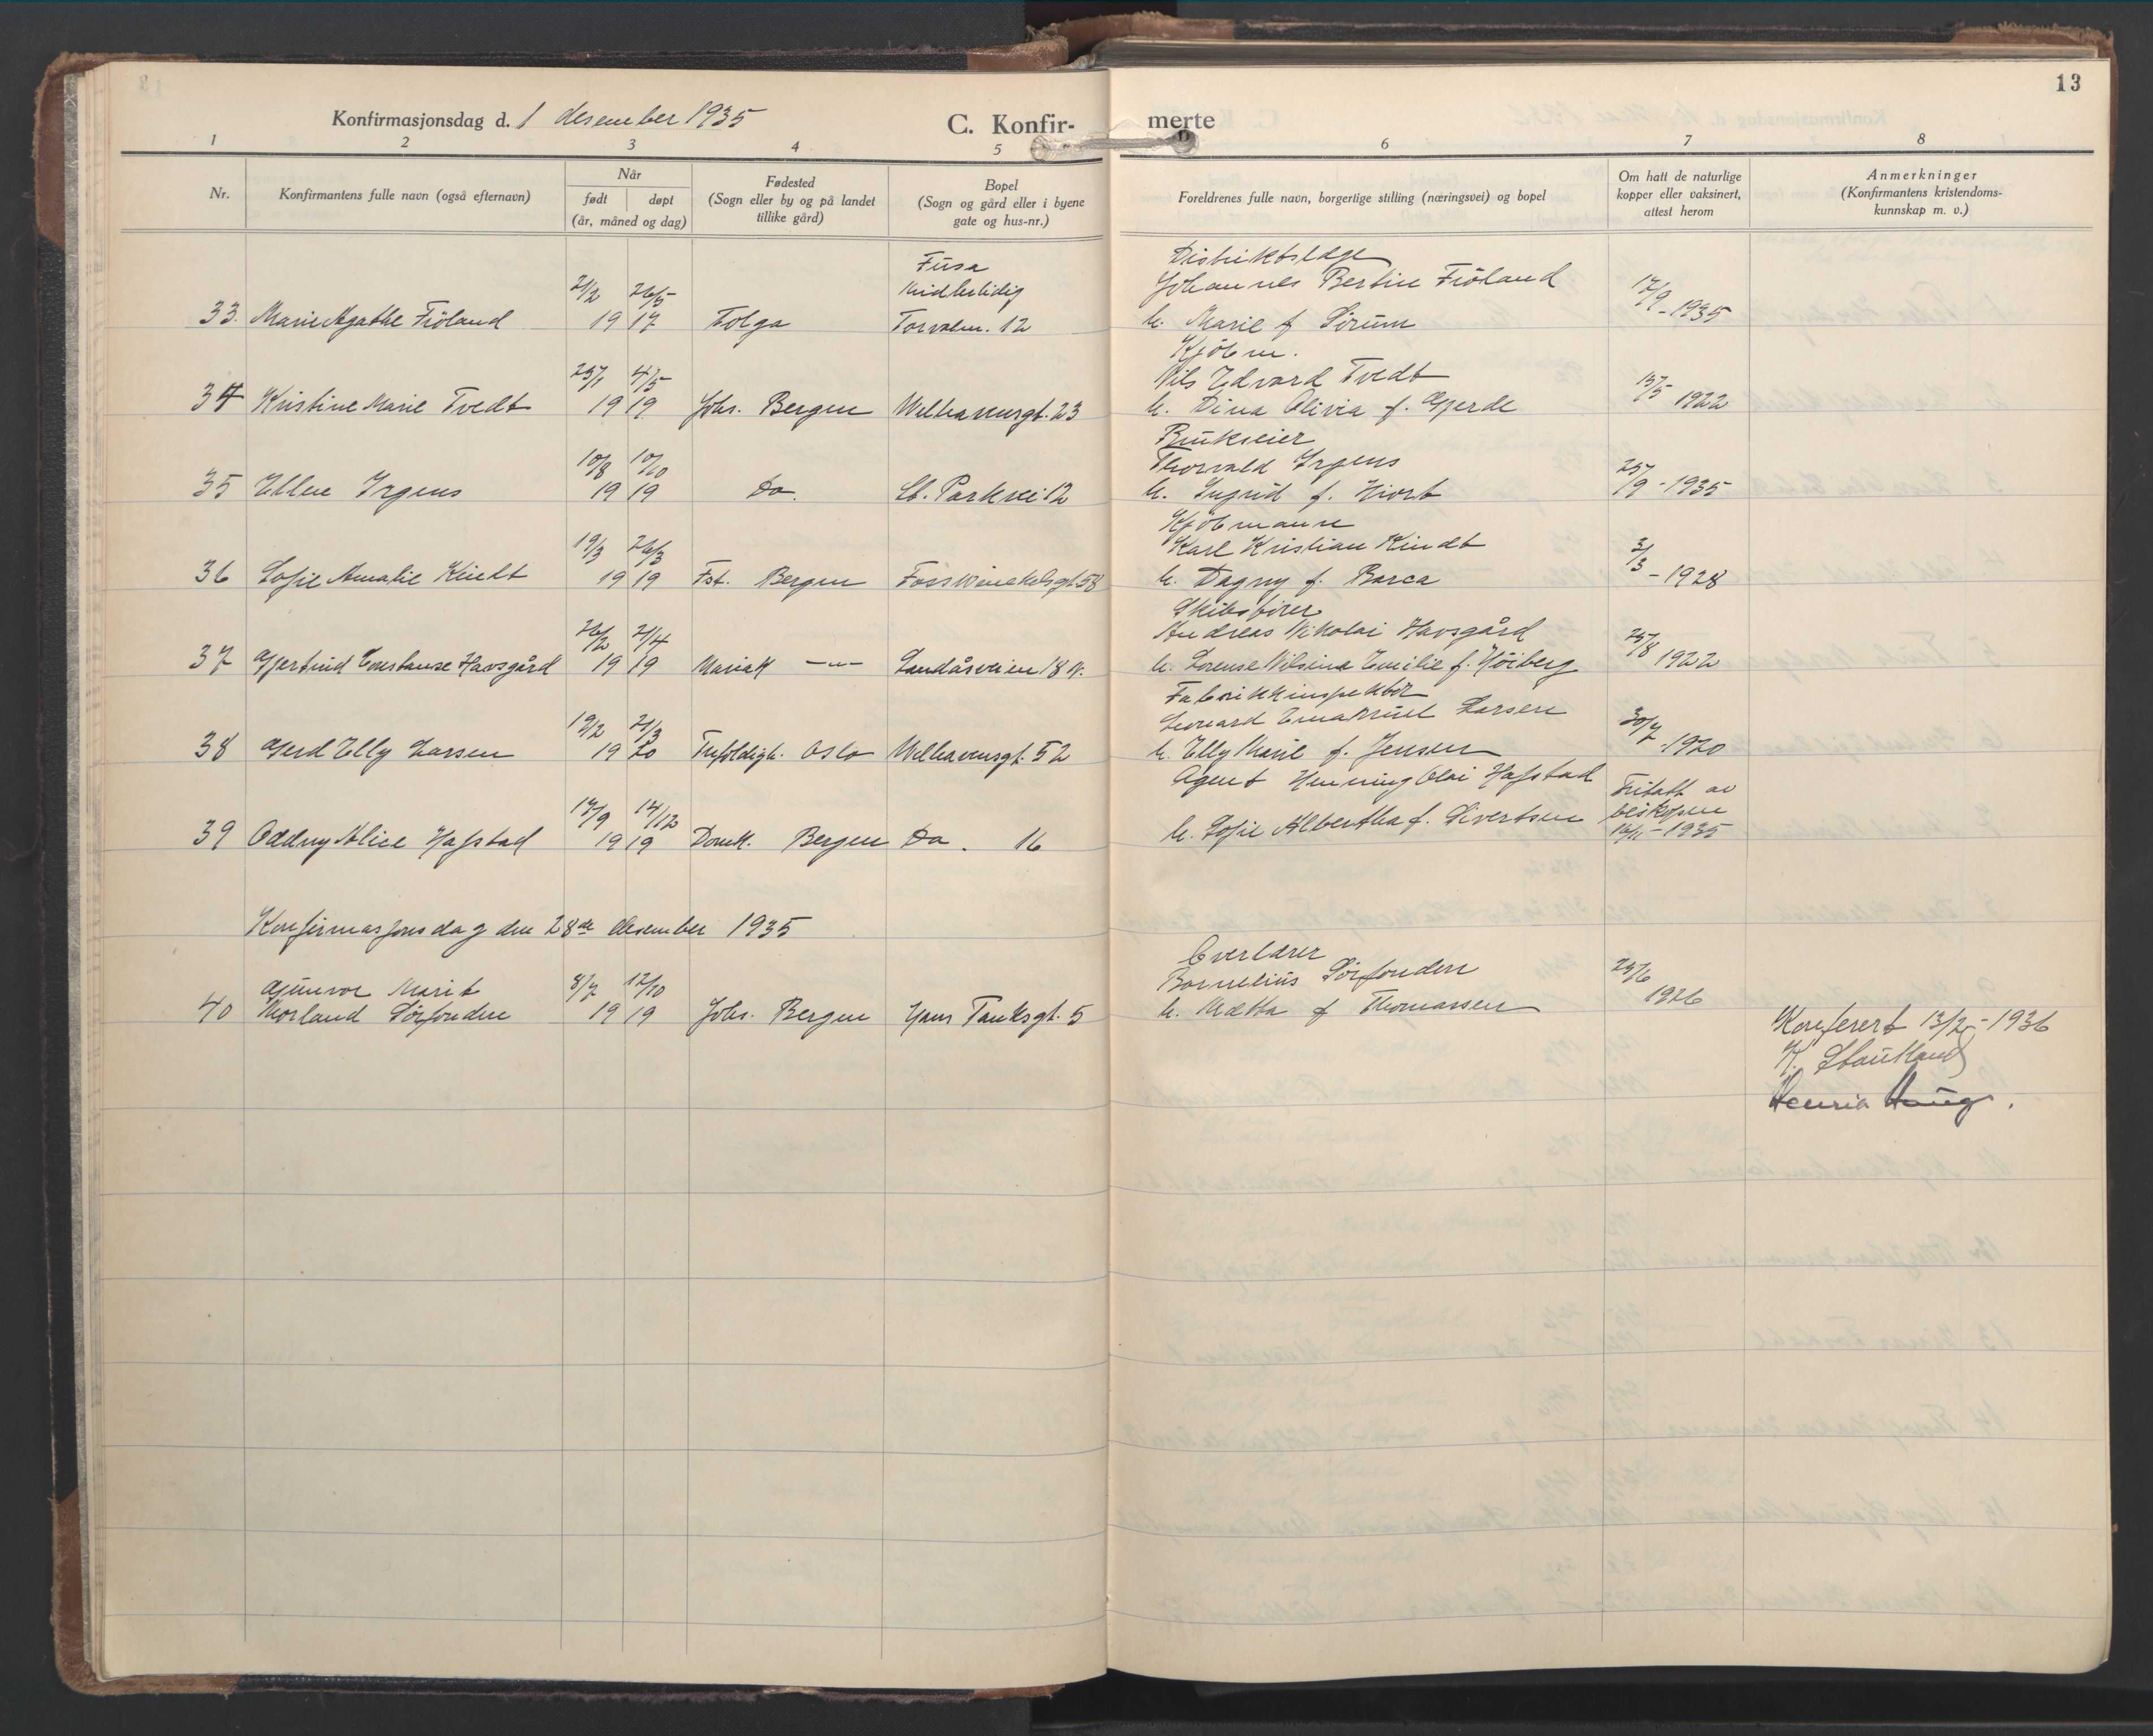 13
Konfirmasjonsdag d. 1 desember 1935
C. Konfir-
merte
1 2 3 4 5 6 7 8
Nr.
Konfirmantens fulle navn (også efternavn)
Når
født døpt
(år, måned og dag)
Fødested
(Sogn eller by og på landet
tillike gård)
Bopel
(Sogn og gård eller i byene
gate og hus-nr.)
Foreldrenes fulle navn, borgerlige stilling (næringsvei) og bopel
Om hatt de naturlige
kopper eller vaksinert,
attest herom
Anmerkninger
(Konfirmantens kristendoms-
kunnskap m. v.)
Fusa
midlertidig
Distriktslæge
21/2 26/5 Johannes Bertin Fröland 17/9-1935
33. Marie Agathe Fröland 19 17 Tolga Torvalm. 12 h. Marie f Sörum
Kjöbm.
25/1 4/5 Nils Edvard Tvedt 15/5 1922
34 Kristine Marie Tvedt 19 19 Johs. Bergen Welhavensgt. 23 h. Dina Olivia f. Gjerde
Brukseier
10/8 10/10 Thorvald Irgens 25/9-1935
35 Ellen Irgens 19 19 Do. St. Parkvei 12 h. Ingrid f. Hiort
Kjöbmann
19/3 26/3 Karl Kristian Kindt 3/3-1928
36 Sofie Amalie Kindt 19 19 Fst. Bergen Fosswinckelsgt. 58 h. Dagny f. Barca
Skibsförer
26/2 21/4 Andreas Nikolai Havsgård 25/8 1922
37 Gjertrud Constanse Havsgård 19 19 Mariak —"— Landåsveien 18 N. h. Lorense Nilsina Emilie f. Höiberg
Fabrikkinspektör
19/2 21/3 Leonard Emanuel Larsen 30/7-1920
38 Gerd Elly Larsen 19 20 Trefoldigh. Oslo Welhavensgt. 52 h. Elly Marie f. Jensen
Agent Henning Olai Hafstad Fritatt av
17/9 14/12 biskopen
39 Oddny Alice Hafstad 19 19 Domk. Bergen Do. 16 h. Sofie Albertha f. Sivertsen 16/11-1935
Konfirmasjonsdag den 28de desember 1935
Overlærer
Gunvor Marit 8/7 12/10 Cornelius Sörfonden 25/6 1926
40 Morland Sörfonden 19 19 Johs. Bergen Hans Tanksgt. 5 h. Metha f Thomassen
Konferert 13/2-1936
K. Staukland
Haug.